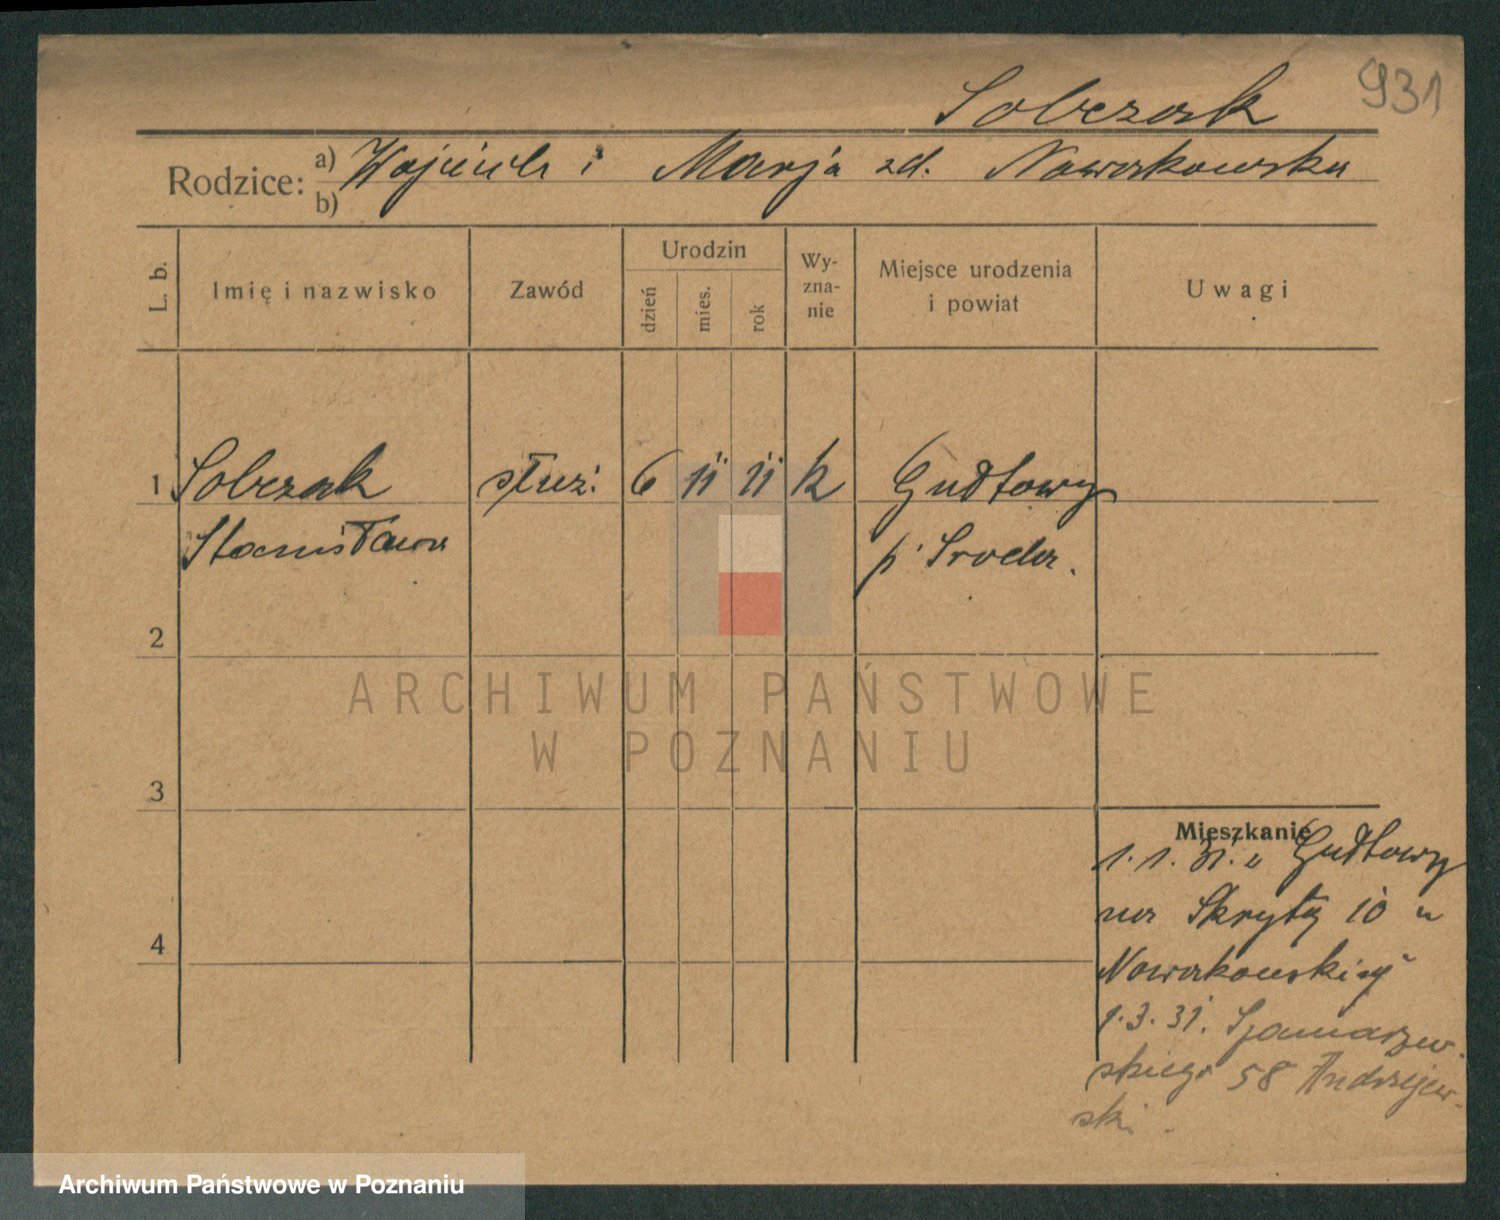 931
Sobczak
Rodzice: a) Wojciech i Marja zd. Nowakowska
b)
L. b.
Imię i nazwisko
Zawód
Urodzin
dzień
mies.
rok
Wy-
zna-
nie
Miejsce urodzenia
i powiat
Uwagi
1 Sobczak służ. 6 11 11 k Gułtowy
Stanisława p. Środa.
2
3
4
Mieszkanie
1.1.31. z Gułtowy
na Skrytą 10 u
Nowakowskiej
1.3.31. Szamarzew-
skiego 58 Andrzejew-
ski.
ARCHIWUM PAŃSTWOWE
W POZNANIU
Archiwum Państwowe w Poznaniu